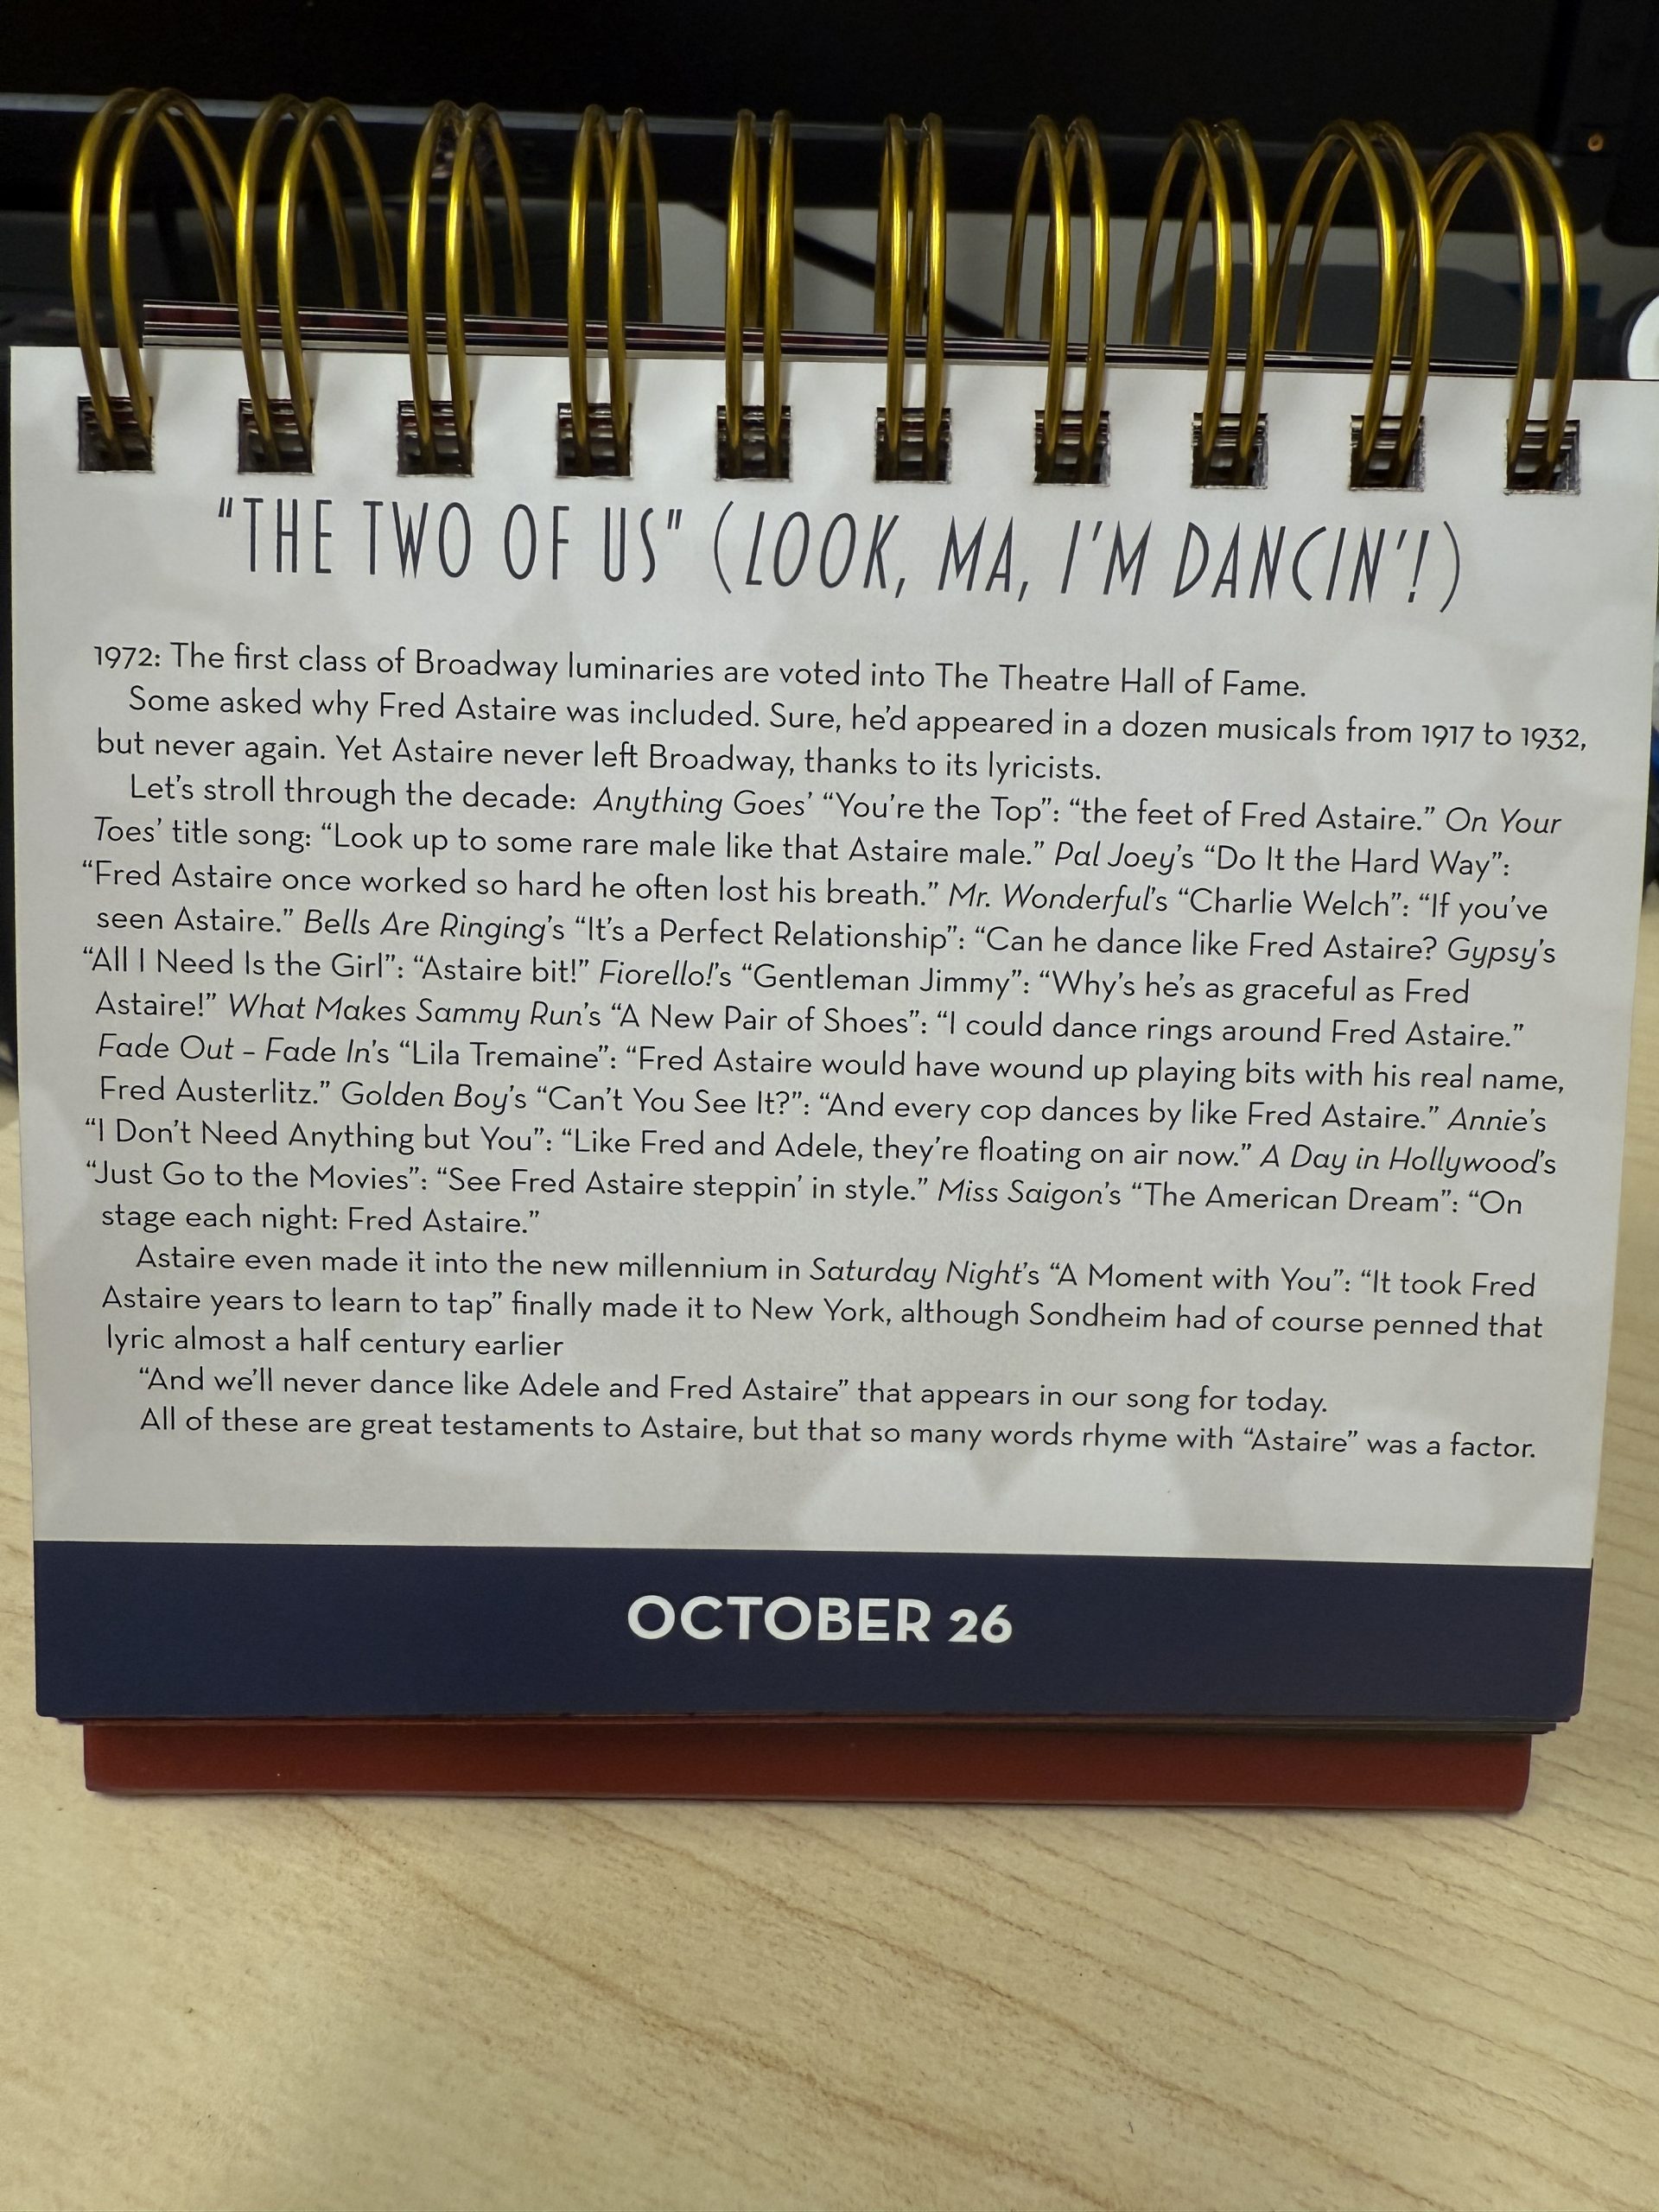 "THE TWO OF US" (LOOK, MA, I'M DANCIN'!)
1972: The first class of Broadway luminaries are voted into The Theatre Hall of Fame.
Some asked why Fred Astaire was included. Sure, he'd appeared in a dozen musicals from 1917 to 1932,
but never again. Yet Astaire never left Broadway, thanks to its lyricists.
Let's stroll through the decade: Anything Goes' “You're the Top”: “the feet of Fred Astaire.” On Your
Toes' title song: “Look up to some rare male like that Astaire male.” Pal Joey's “Do It the Hard Way”:
“Fred Astaire once worked so hard he often lost his breath.” Mr. Wonderful's “Charlie Welch”: “If you've
seen Astaire.” Bells Are Ringing's “It's a Perfect Relationship”: “Can he dance like Fred Astaire? Gypsy's
“All I Need Is the Girl”: “Astaire bit!” Fiorello!'s “Gentleman Jimmy”: “Why's he's as graceful as Fred
Astaire!” What Makes Sammy Run's “A New Pair of Shoes”: “I could dance rings around Fred Astaire.”
Fade Out – Fade In's “Lila Tremaine”: “Fred Astaire would have wound up playing bits with his real name,
Fred Austerlitz.” Golden Boy's “Can't You See It?”: “And every cop dances by like Fred Astaire.” Annie's
“I Don't Need Anything but You”: “Like Fred and Adele, they're floating on air now.” A Day in Hollywood's
“Just Go to the Movies”: “See Fred Astaire steppin' in style.” Miss Saigon's “The American Dream”: “On
stage each night: Fred Astaire.”
Astaire even made it into the new millennium in Saturday Night's “A Moment with You”: “It took Fred
Astaire years to learn to tap” finally made it to New York, although Sondheim had of course penned that
lyric almost a half century earlier
“And we'll never dance like Adele and Fred Astaire” that appears in our song for today.
All of these are great testaments to Astaire, but that so many words rhyme with “Astaire” was a factor.
OCTOBER 26